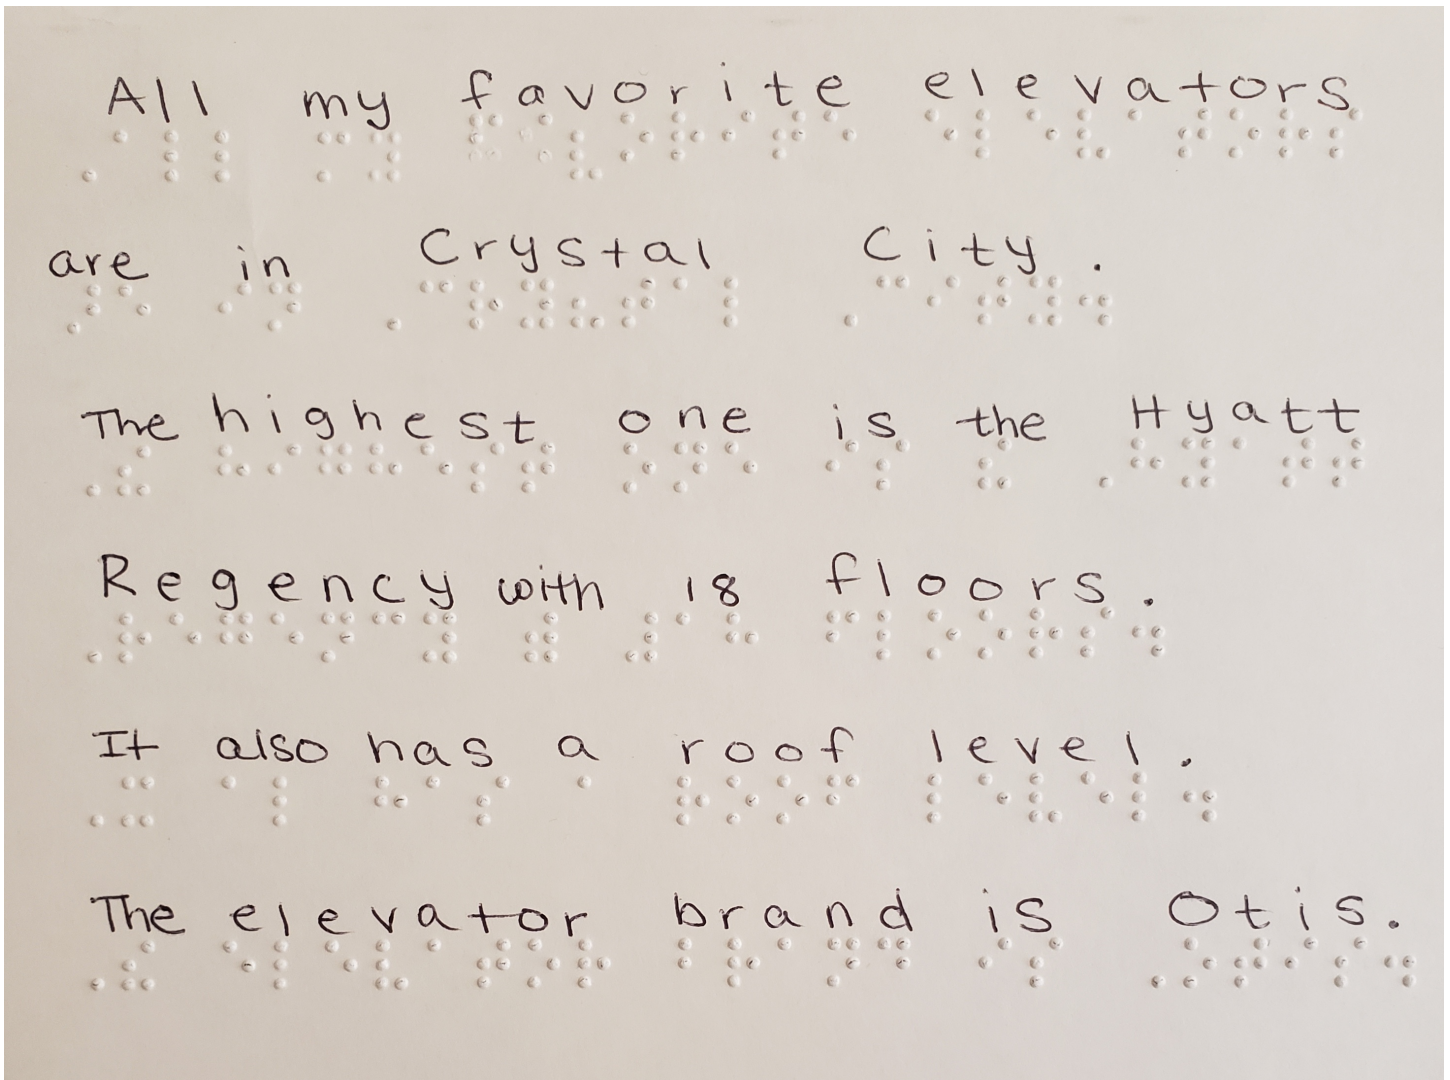 All my favorite elevators
are in Crystal City.
The highest one is the Hyatt
Regency with 18 floors.
It also has a roof level.
The elevator brand is Otis.